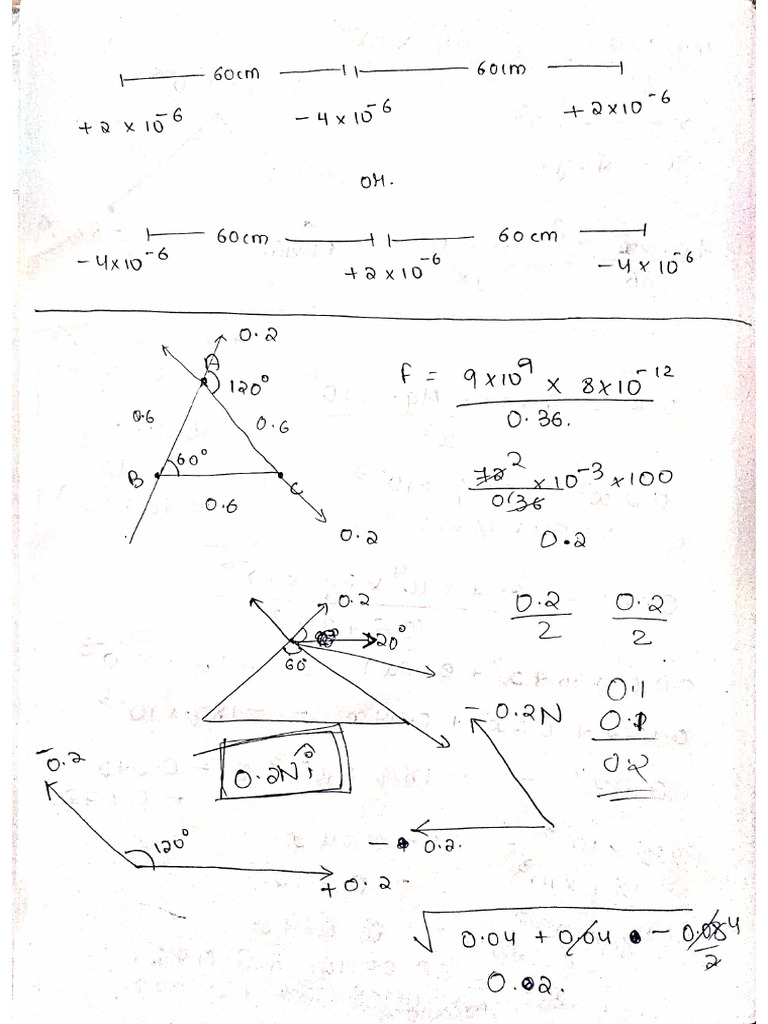 60cm 60cm
+2×10⁻⁶ -4×10⁻⁶ +2×10⁻⁶
or.
60cm 60cm
-4×10⁻⁶ +2×10⁻⁶ -4×10⁻⁶
0.2
A
120°
0.6 0.6
B 60° C
0.6
0.2
F = 9×10⁹ × 8×10⁻¹²
0.36.
72 2 ×10⁻³×100
0.36
0.2
0.2 0.2
2 2
0.2
120°
60°
0.1
0.1
0.2
- 0.2N
0.2N î
-0.2
120°
+0.2
- 0.2.
√ 0.04 + 0.04 - 0.084
2
0.02.